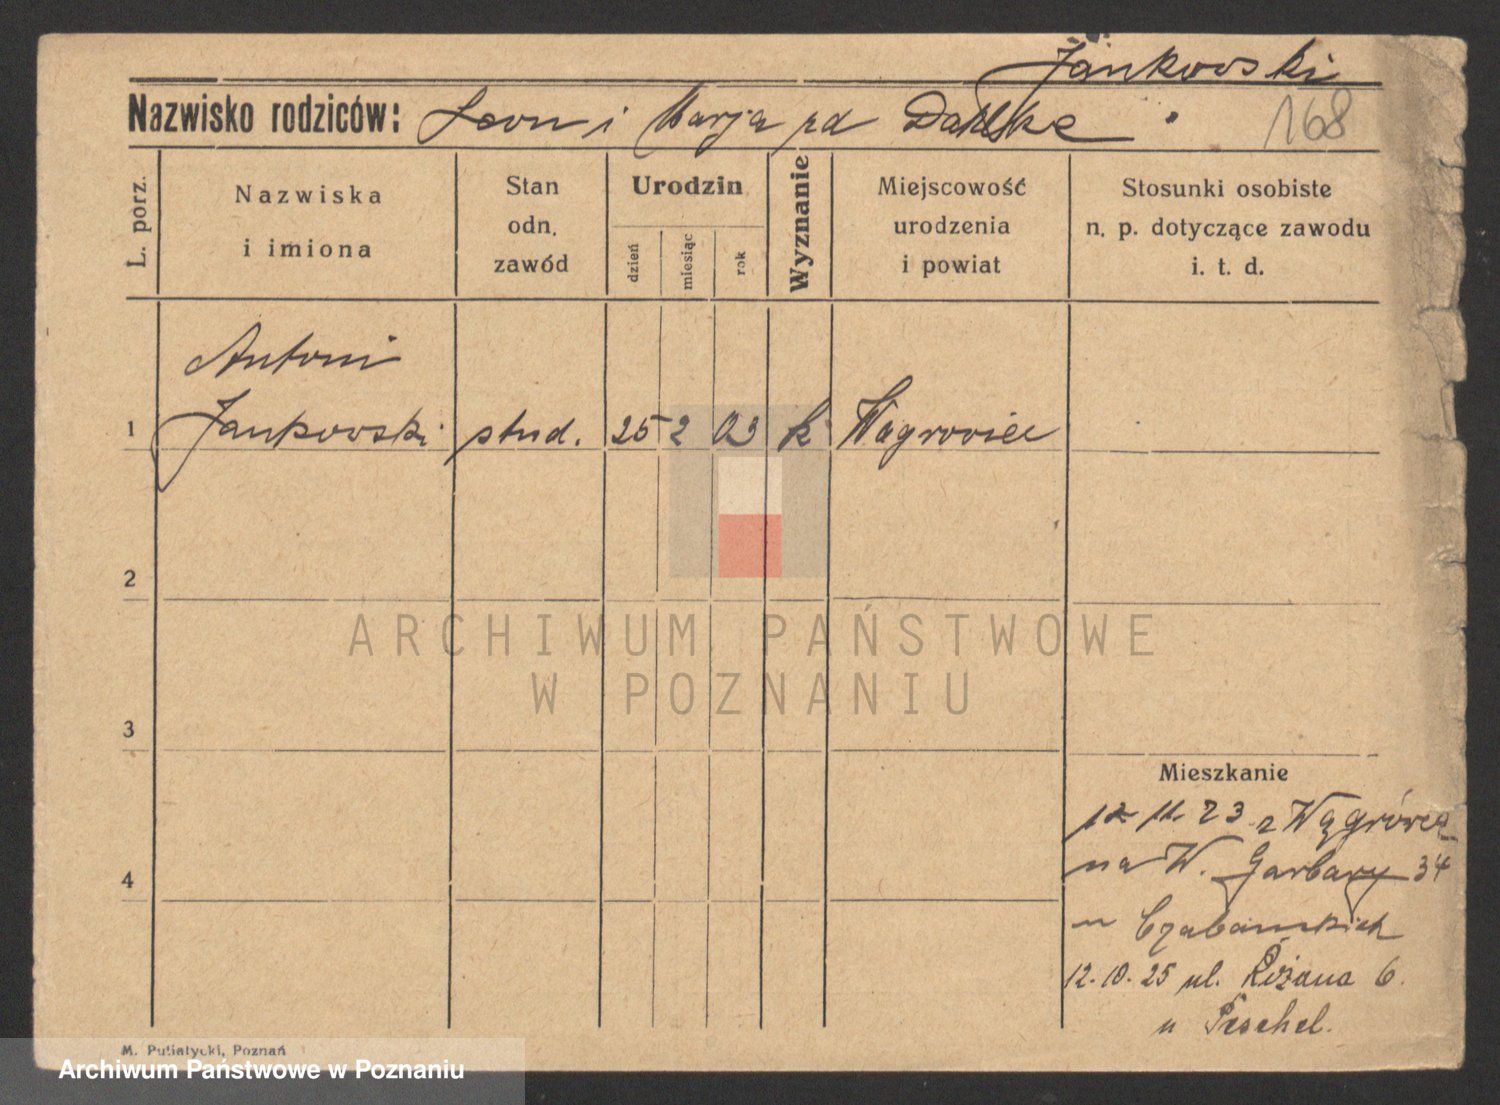 Jankowski
Nazwisko rodziców: Leon i Marja zd Dahlke
168
L. porz.
Nazwiska
i imiona
Stan
odn.
zawód
Urodzin
dzień
miesiąc
rok
Wyznanie
Miejscowość
urodzenia
i powiat
Stosunki osobiste
n. p. dotyczące zawodu
i. t. d.
Antoni
1 Jankowski stud. 25 2 03 k Wągrowiec
2
3
4
Mieszkanie
12 11. 23 z Wągrówca
na W. Garbary 34
u
12. 10. 25 ul. Różana 6.
u Peschel.
M. Putiatycki, Poznań
ARCHIWUM PAŃSTWOWE
W POZNANIU
Archiwum Państwowe w Poznaniu